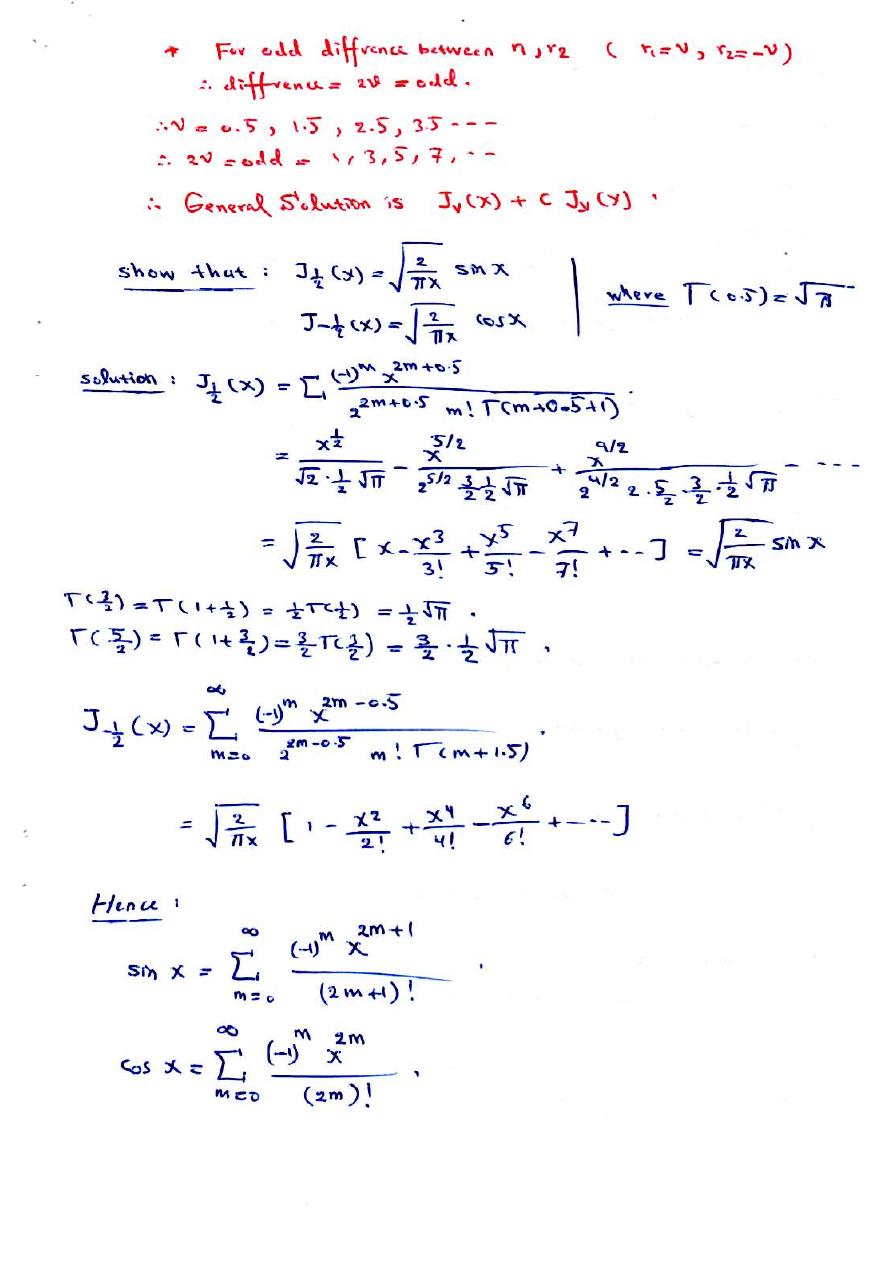 * For odd diffrence between r1, r2 ( r1 = ν, r2 = -ν )
∴ diffrence = 2ν = odd.
∴ ν = 0.5, 1.5, 2.5, 3.5 ---
∴ 2ν = odd = 1, 3, 5, 7, --
∴ General Solution is Jν(x) + C Jν(x).
show that : J½(x) = √(2/πx) sin x
where Γ(0.5) = √π
J-½(x) = √(2/πx) cos x
solution : J½(x) = Σ (-1)^m x^(2m+0.5) / 2^(2m+0.5) m! Γ(m+0.5+1)
= x^½ / √2 · ½ √π - x^(5/2) / 2^(5/2) 3/2 ½ √π + x^(9/2) / 2^(9/2) 2 · 5/2 · 3/2 · ½ √π - ---
= √(2/πx) [ x - x³/3! + x⁵/5! - x⁷/7! + --- ] = √(2/πx) sin x
Γ(3/2) = Γ(1+½) = ½ Γ(½) = ½ √π .
Γ(5/2) = Γ(1+3/2) = 3/2 Γ(3/2) = 3/2 · ½ √π ,
J-½(x) = Σ_(m=0)^∞ (-1)^m x^(2m-0.5) / 2^(2m-0.5) m! Γ(m+1.5)
= √(2/πx) [ 1 - x²/2! + x⁴/4! - x⁶/6! + ---- ]
Hence :
sin x = Σ_(m=0)^∞ (-1)^m x^(2m+1) / (2m+1)! .
cos x = Σ_(m=0)^∞ (-1)^m x^(2m) / (2m)! ,